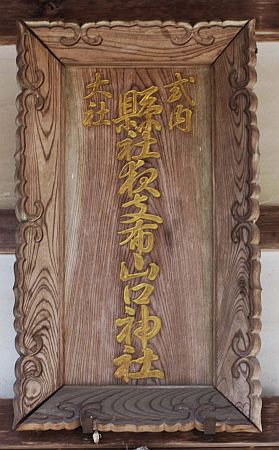 式内
大社
縣社夜支布山口神社